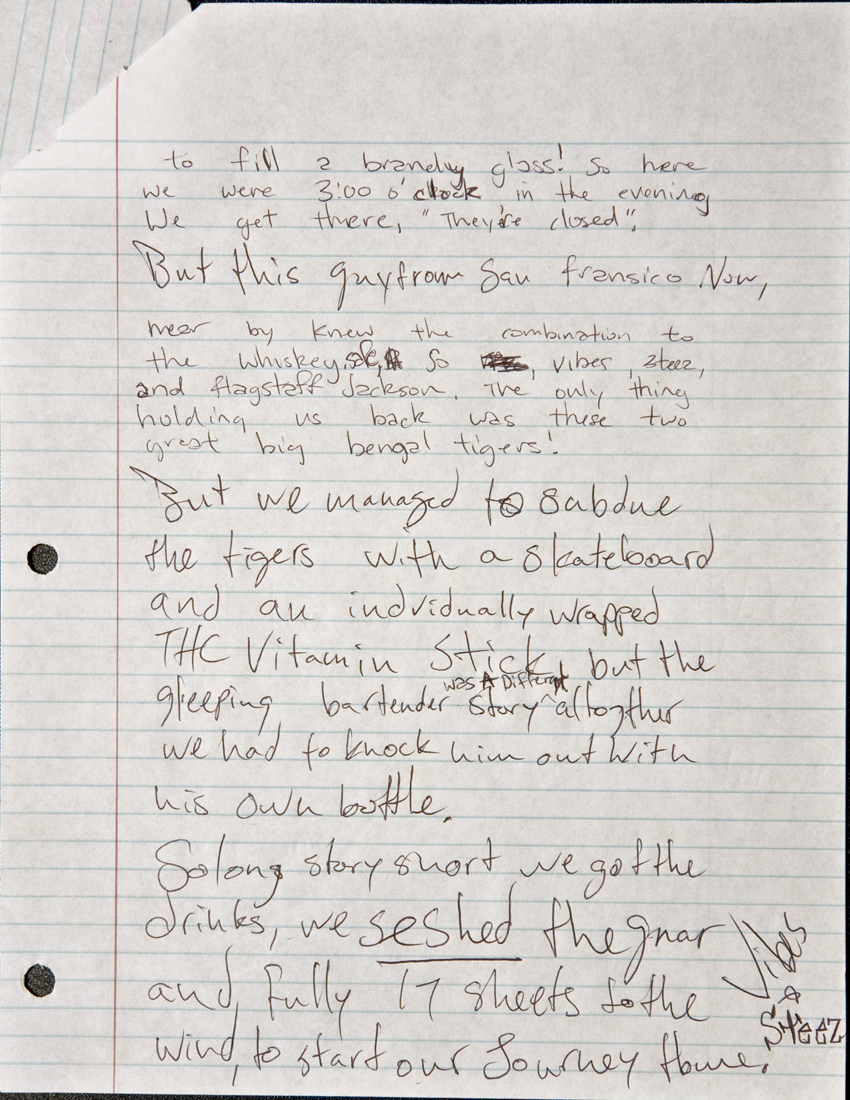 to fill a brandy glass! So here
we were 3:00 o'clock in the evening
We get there, "They're closed".
But this guy from San fransico Now,
near by knew the combination to
the whiskey, so, vibes, steez,
and flagstaff Jackson. The only thing
holding us back was these two
great big bengal tigers!
But we managed to subdue
the tigers with a skateboard
and an indvidually wrapped
THC Vitamin Stick, but the
sleeping bartender story altogther
was A Different
we had to knock him out with
his own bottle.
So long story short we got the
drinks, we seshed the gnar
and, fully 17 sheets to the
wind, to start our Journey home.
Vibes
&
Steez